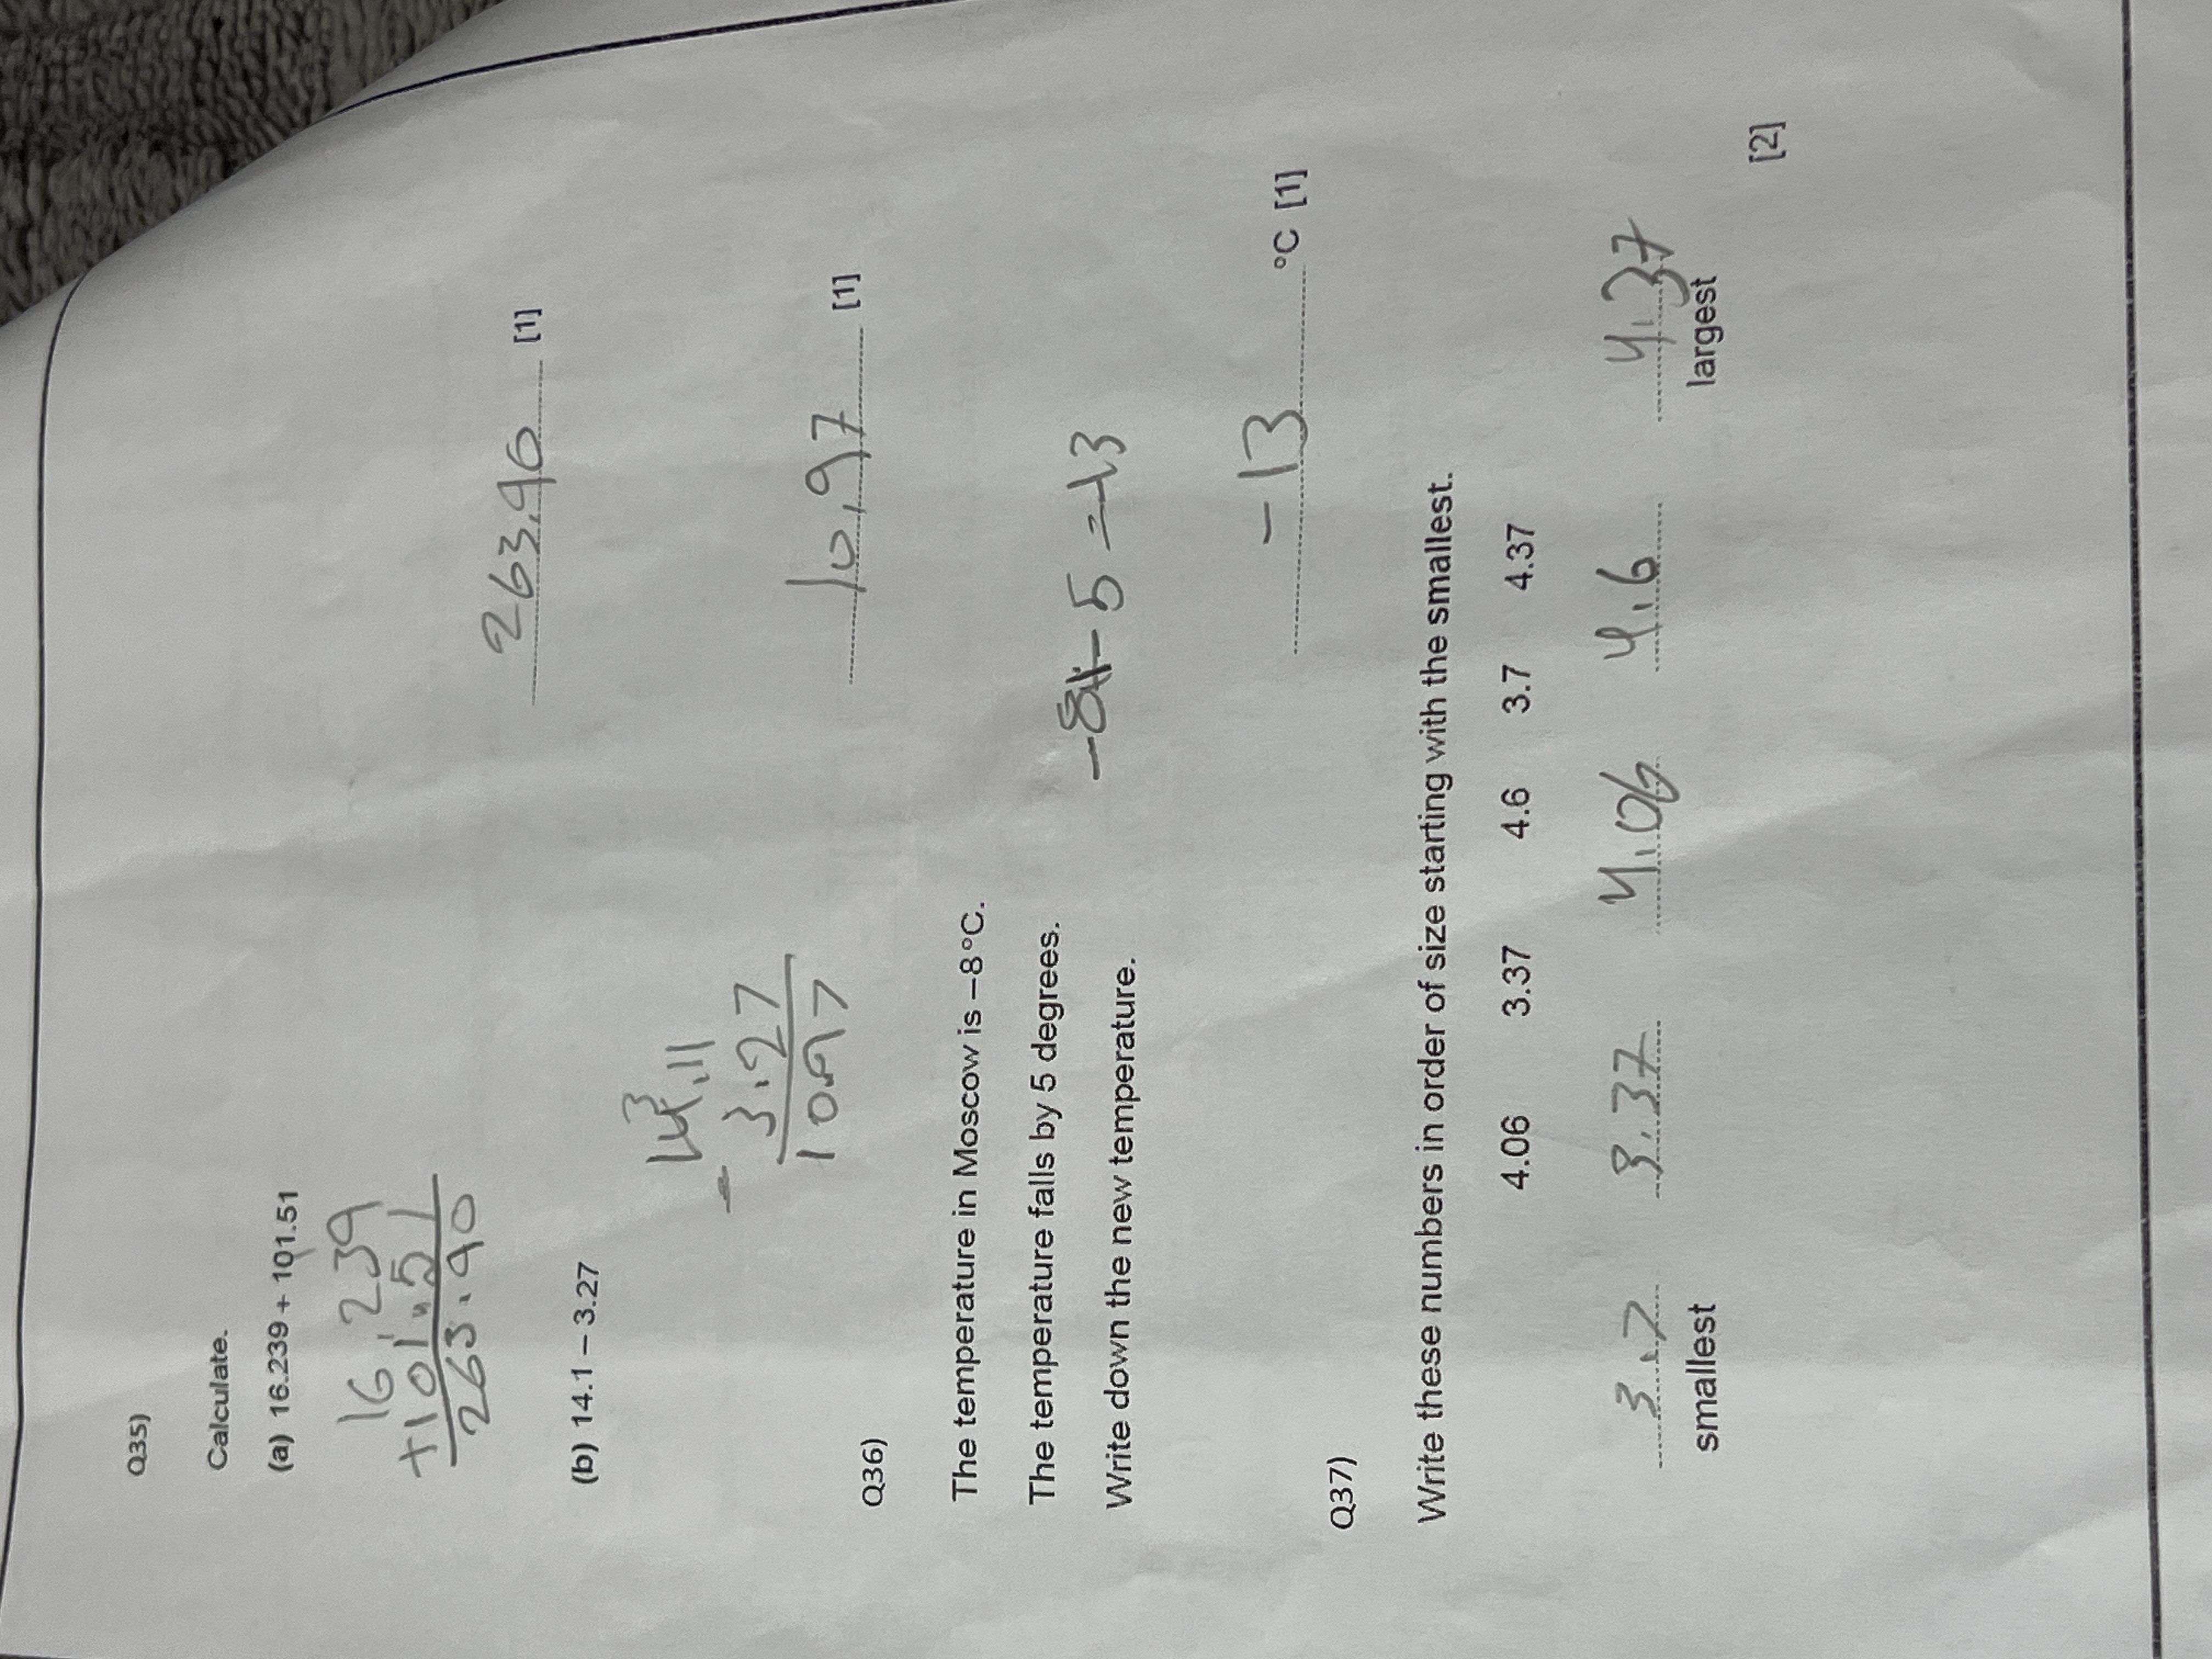 Q35)
Calculate.
(a) 16.239 + 101.51
16.239
+101.51
263.90
263.90 [1]
(b) 14.1 – 3.27
14 3.11
- 3.27
10.97
10.97 [1]
Q36)
The temperature in Moscow is –8°C.
The temperature falls by 5 degrees.
Write down the new temperature.
-8 - 5 = -13
-13 °C [1]
Q37)
Write these numbers in order of size starting with the smallest.
4.06 3.37 4.6 3.7 4.37
3.7 3.37 4.06 4.6 4.37
smallest largest
[2]